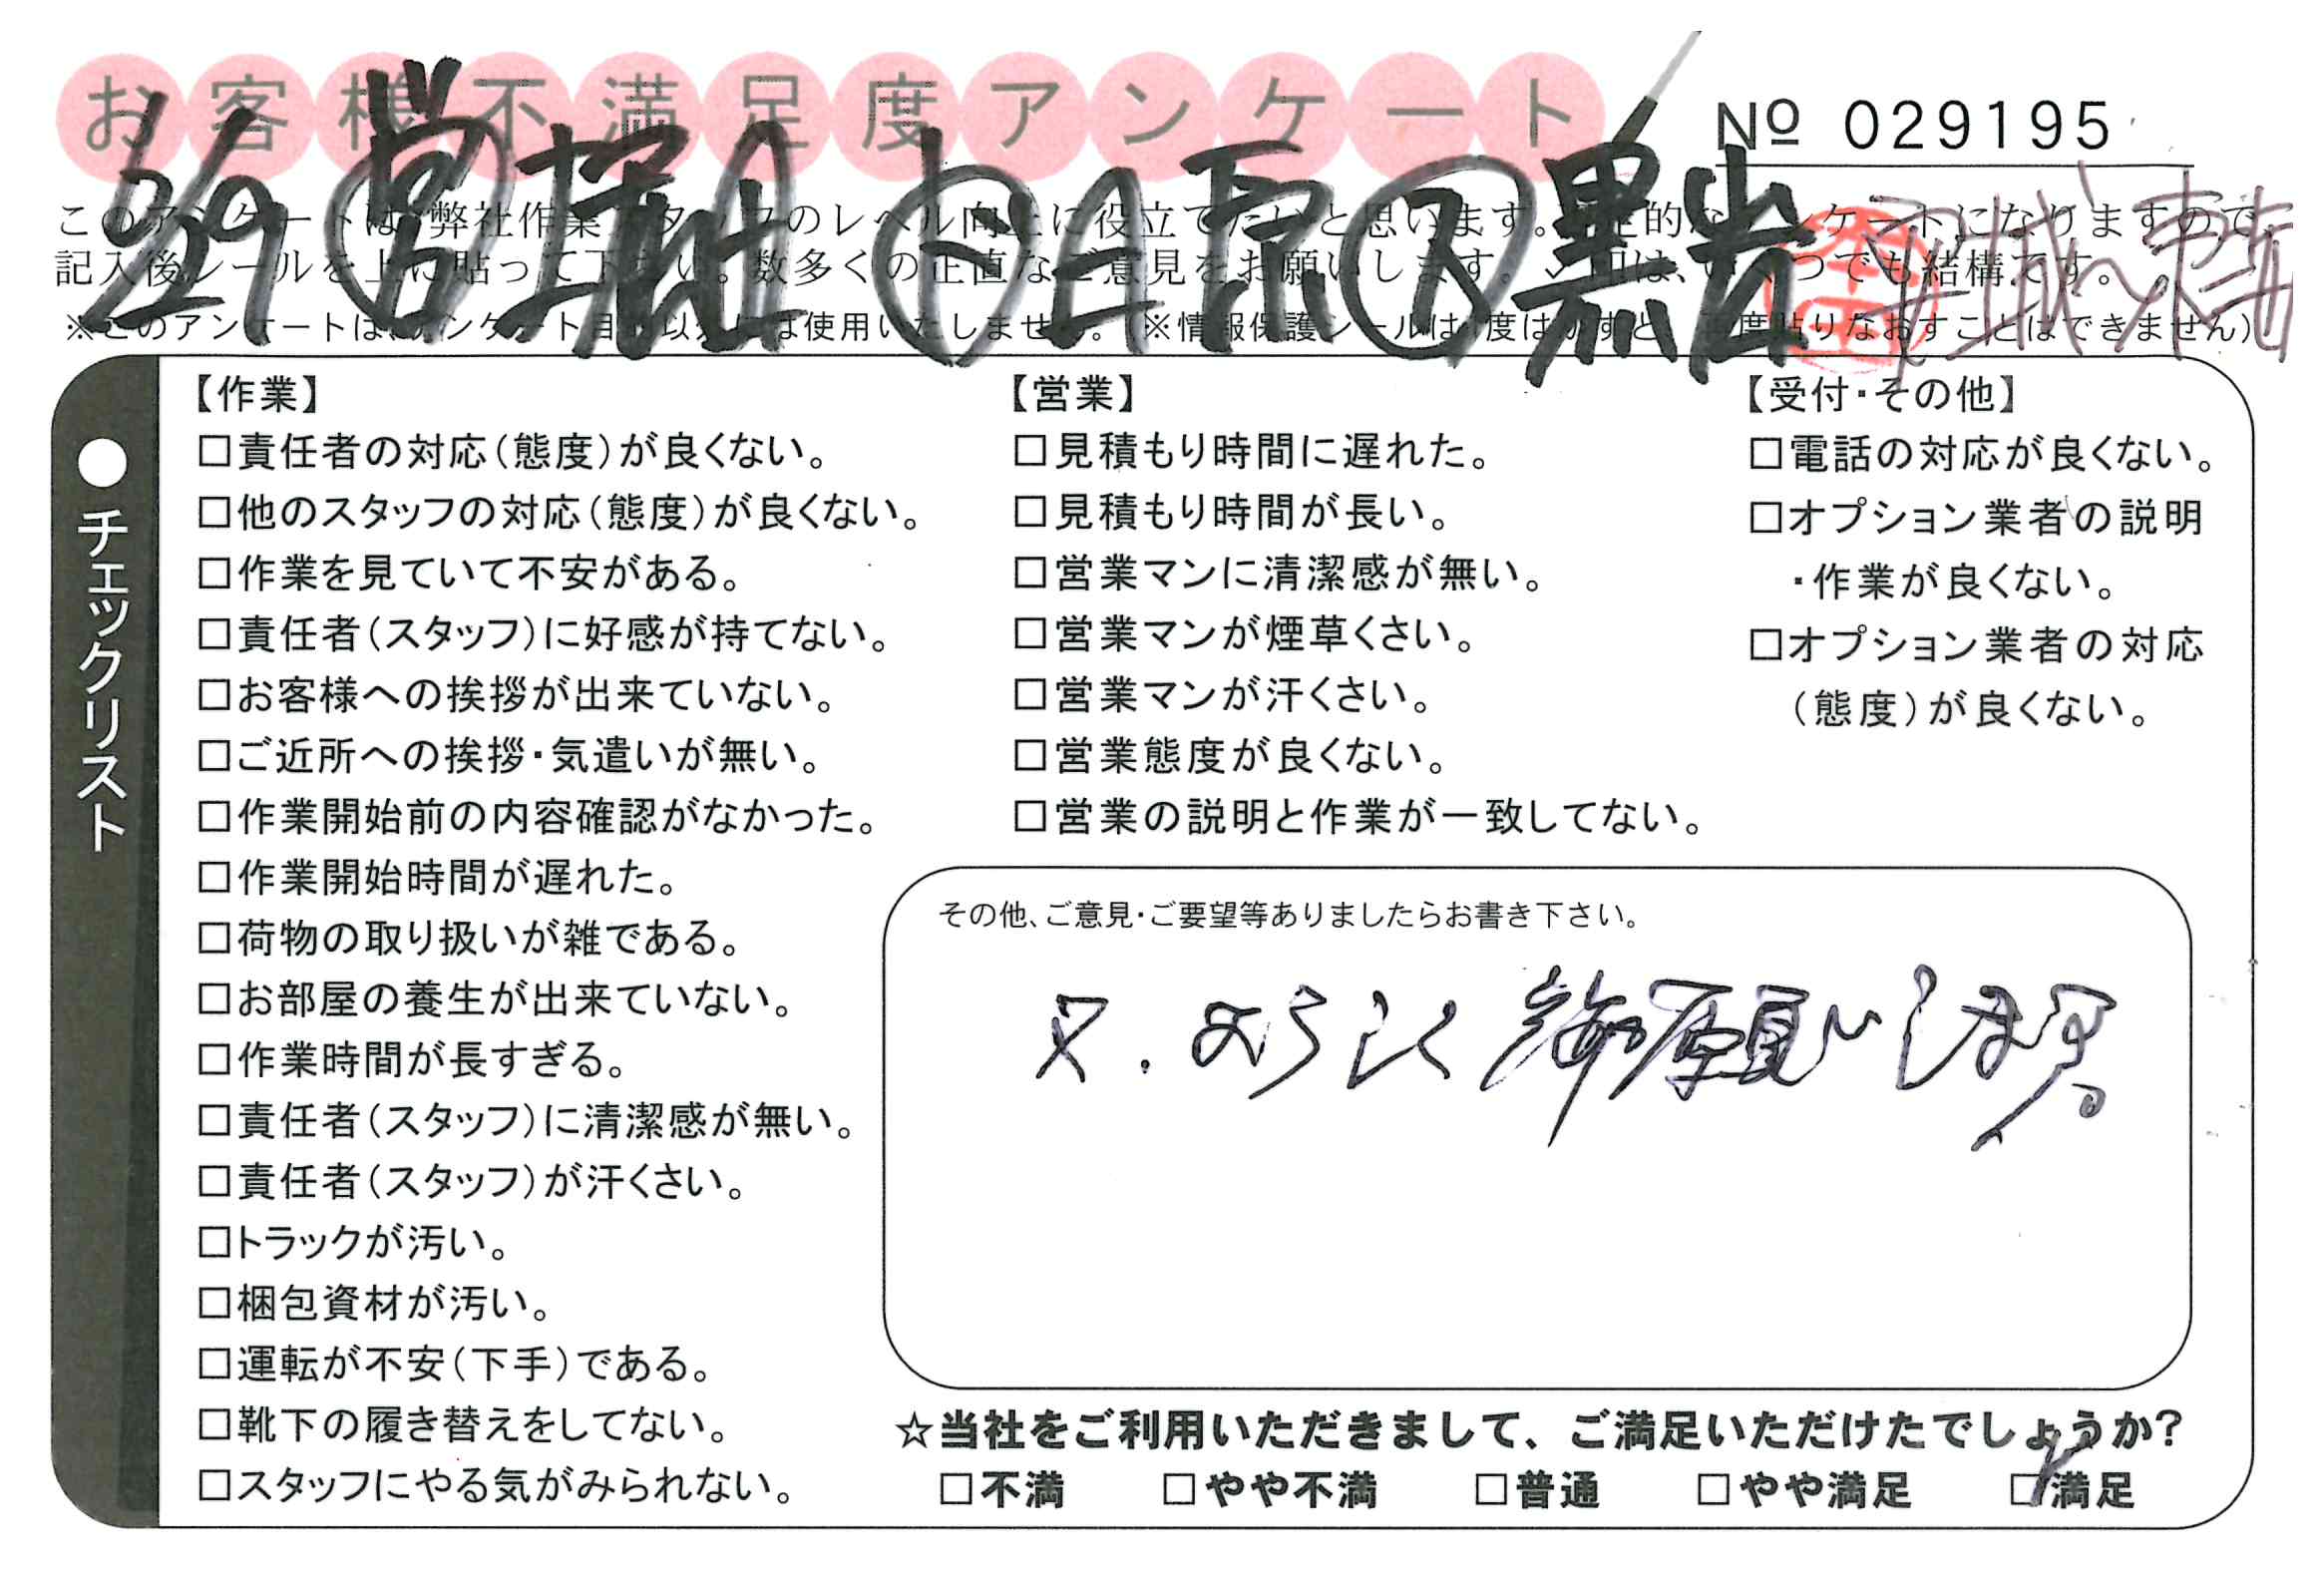 お客様不満足度アンケート
№ 029195
営 堀 ヘ 石原 ス 黒岩
このアンケートは、弊社作業スタッフのレベル向上に役立てたいと思います。
記入後シールを上に貼って下さい。数多くの正直なご意見をお願いします。
※このアンケートは、アンケート目的以外には使用いたしません。(※情報保護シールは1度はがすと、再度貼りなおすことはできません)
●チェックリスト
【作業】
□責任者の対応(態度)が良くない。
□他のスタッフの対応(態度)が良くない。
□作業を見ていて不安がある。
□責任者(スタッフ)に好感が持てない。
□お客様への挨拶が出来ていない。
□ご近所への挨拶・気遣いが無い。
□作業開始前の内容確認がなかった。
□作業開始時間が遅れた。
□荷物の取り扱いが雑である。
□お部屋の養生が出来ていない。
□作業時間が長すぎる。
□責任者(スタッフ)に清潔感が無い。
□責任者(スタッフ)が汗くさい。
□トラックが汚い。
□梱包資材が汚い。
□運転が不安(下手)である。
□靴下の履き替えをしてない。
□スタッフにやる気がみられない。
【営業】
□見積もり時間に遅れた。
□見積もり時間が長い。
□営業マンに清潔感が無い。
□営業マンが煙草くさい。
□営業マンが汗くさい。
□営業態度が良くない。
□営業の説明と作業が一致してない。
【受付・その他】
□電話の対応が良くない。
□オプション業者の説明
・作業が良くない。
□オプション業者の対応
(態度)が良くない。
その他、ご意見・ご要望等ありましたらお書き下さい。
又.よろしく御願いします。
☆当社をご利用いただきまして、ご満足いただけたでしょうか?
□不満 □やや不満 □普通 □やや満足 □満足